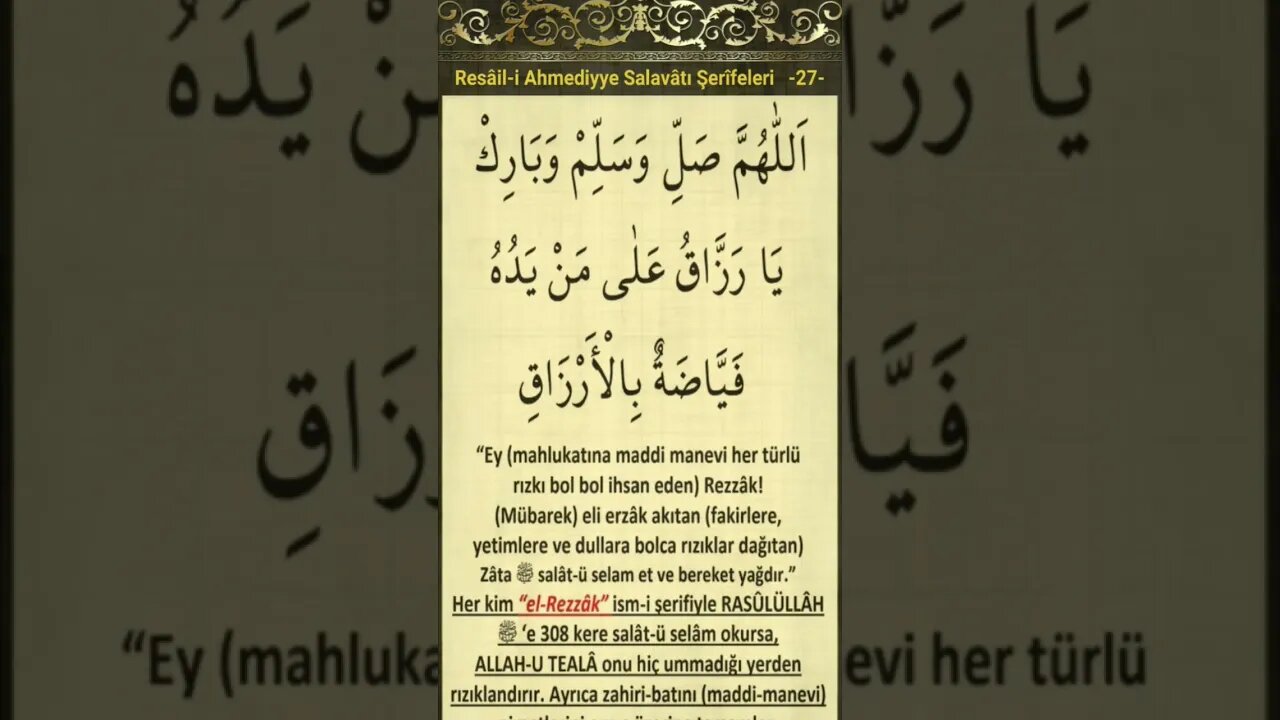 Resâil-i Ahmediyye Salavâtı Şerîfeleri -27-
اَللّٰهُمَّ صَلِّ وَسَلِّمْ وَبَارِكْ
يَا رَزَّاقُ عَلٰى مَنْ يَدُهُ
فَيَّاضَةٌ بِالْأَرْزَاقِ
“Ey (mahlukatına maddi manevi her türlü
rızkı bol bol ihsan eden) Rezzâk!
(Mübarek) eli erzâk akıtan (fakirlere,
yetimlere ve dullara bolca rızıklar dağıtan)
Zâta ﷺ salât-ü selam et ve bereket yağdır.”
Her kim “el-Rezzâk” ism-i şerifiyle RASÛLÜLLÂH
ﷺ ‘e 308 kere salât-ü selâm okursa,
ALLAH-U TEALÂ onu hiç ummadığı yerden
rızıklandırır. Ayrıca zahiri-batını (maddi-manevi)